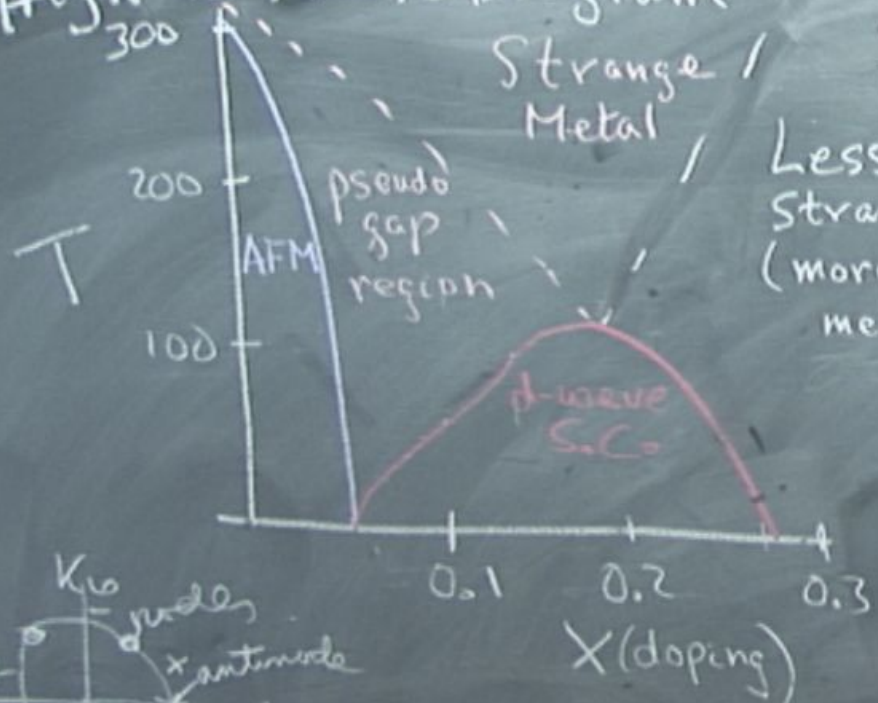 300
Strange
Metal
200
pseudo
gap
region
T
AFM
100
d-wave
S.C.
0.1
0.2
0.3
X (doping)
nodes
x antinode